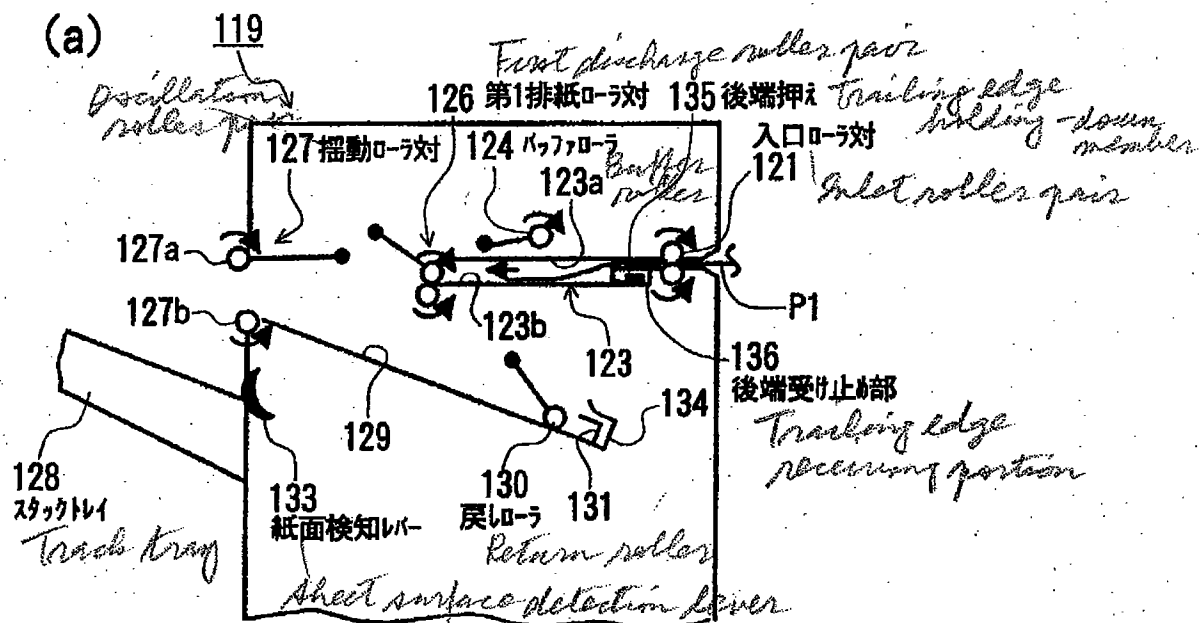 (a)
119
First discharge roller pair
Oscillation
roller pair
126 第1排紙ローラ対
135 後端押え
Trailing edge
holding-down
member
127 揺動ローラ対
124 バッファローラ
Buffer
roller
入口ローラ対
121
Inlet roller pair
123a
127a
P1
127b
123b
123
136
後端受け止め部
Trailing edge
receiving portion
134
129
128
スタックトレイ
133
紙面検知レバー
130
戻しローラ
131
Track tray
Return roller
sheet surface detection lever